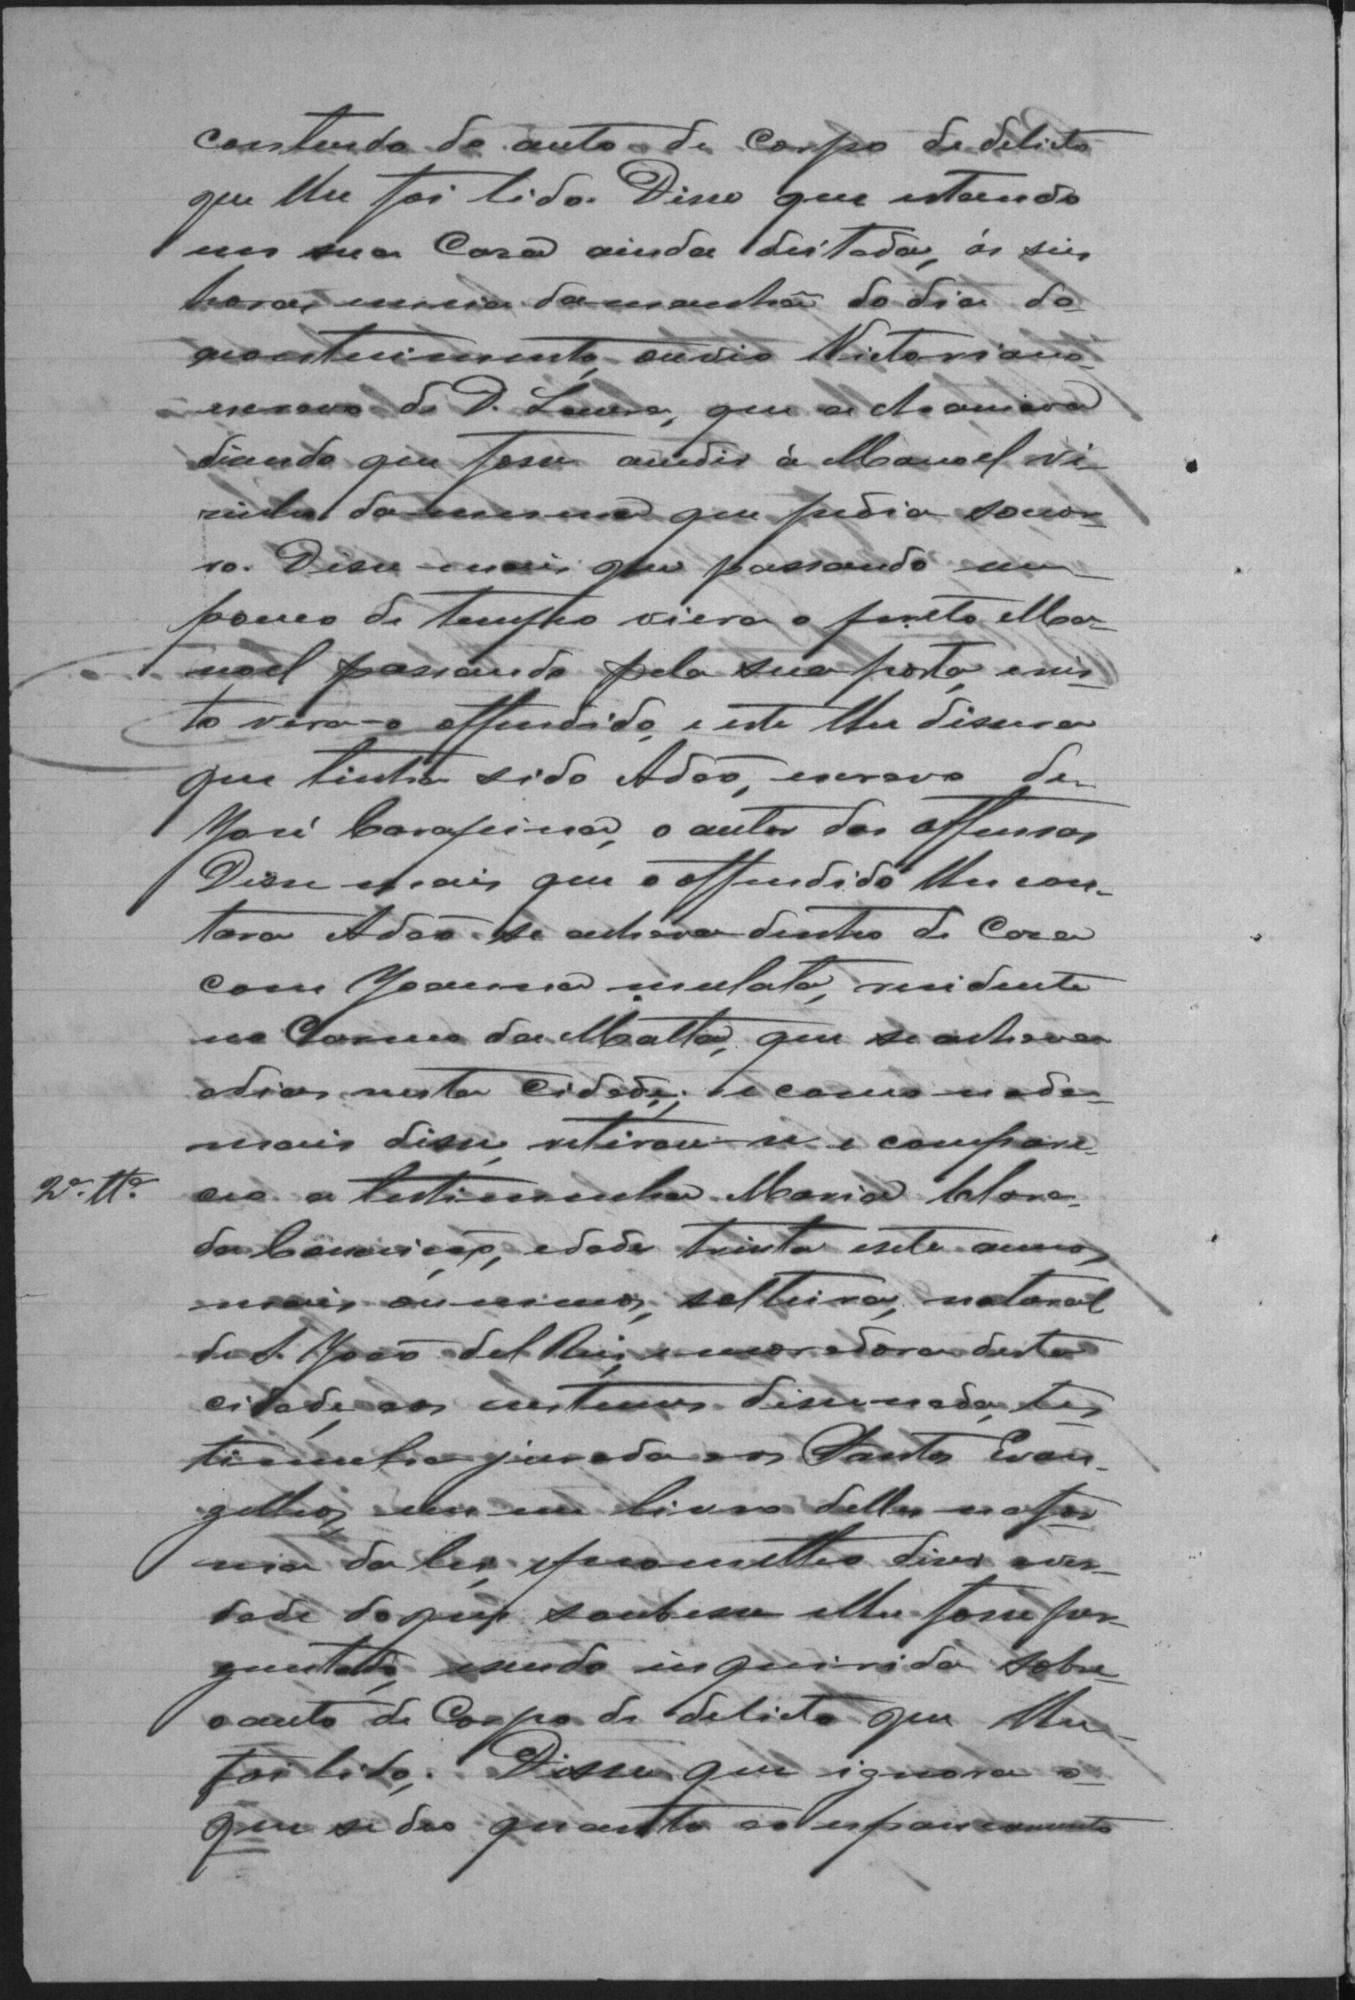 contendo do auto de Corpo de delicto
que lhe foi lido. Disse que estando
em sua Casa ainda deitada, ás seis
horas emeia damanhã do dia do
acontecimento, ouvio Victoriano
escravo de D. Laura, que a chamava
dizendo que fosse acudir á Manoel vi-
sinho da mesma que pedia socor-
ro. Disse mais que passando um
pouco de tempo viera o preto Ma-
noel passando pela sua porta, enis-
to vira-o offendido, e este lhe dissera
que tinha sido Adão, escravo de
José Carapina, o autor das offensas
Disse mais que o offendido lhe con-
tara Adão se achava dentro de Casa
com Joanna mulata, residente
no da Matta, que se achava
adias nesta Cidade; e como nada
mais disse, retirou-se e compare-
2ª. Ttª. ceo a testimunha Maria Clara
da Conceição, edade trinta esete annos,
mais ou menos, solteira, natural
de S. João del Rei, emoradora desta
cidade, aos custumes disse nada, tes-
timunha jurada aos Santos Evan-
gelhos, em um livro delles nafor
ma da lei, eprometteo diser aver-
dade doque soubesse elhe fosse per-
guntado, esendo inquirida sobre
oauto de Corpo de delicto que lhe
foi lido. Disse que ignora o
que se deo quanto ao espancamento